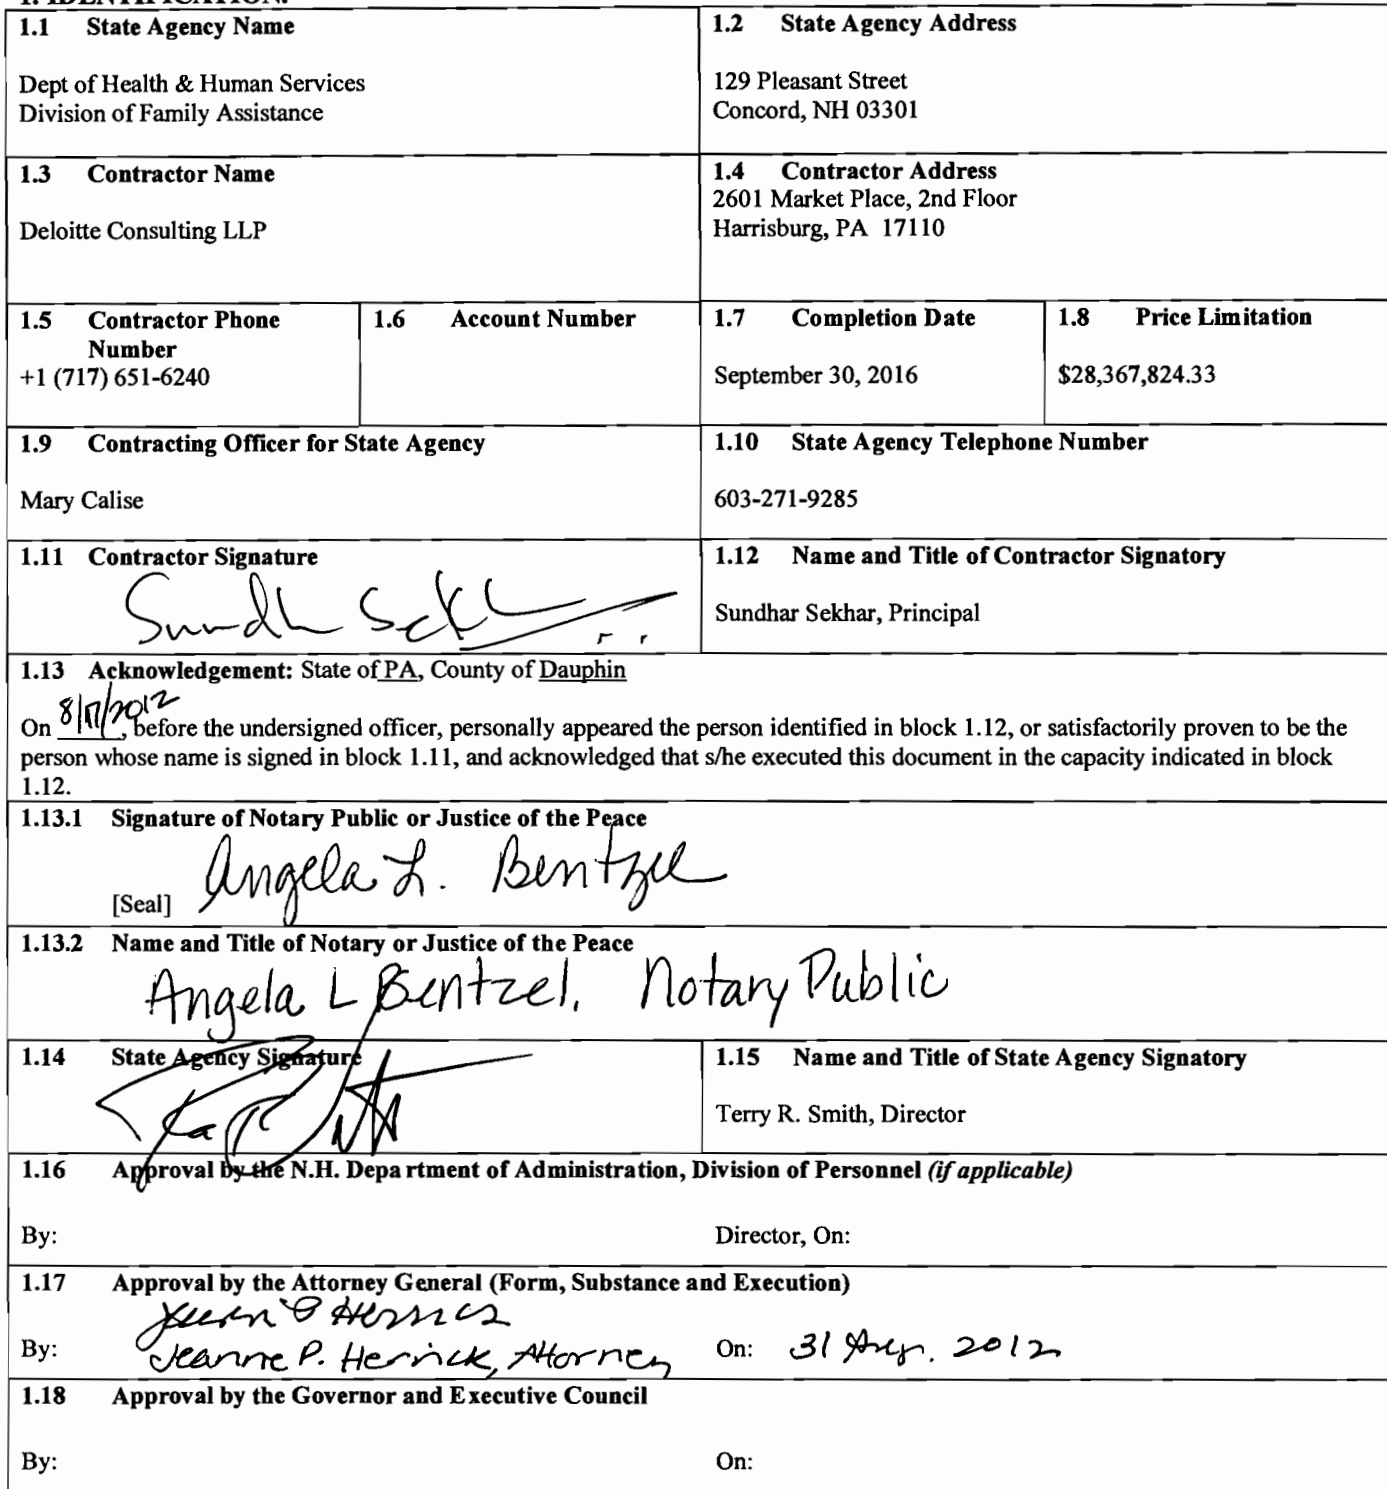 1. IDENTIFICATION.
1.1 State Agency Name
Dept of Health & Human Services
Division of Family Assistance
1.2 State Agency Address
129 Pleasant Street
Concord, NH 03301
1.3 Contractor Name
Deloitte Consulting LLP
1.4 Contractor Address
2601 Market Place, 2nd Floor
Harrisburg, PA 17110
1.5 Contractor Phone
Number
+1 (717) 651-6240
1.6 Account Number
1.7 Completion Date
September 30, 2016
1.8 Price Limitation
$28,367,824.33
1.9 Contracting Officer for State Agency
Mary Calise
1.10 State Agency Telephone Number
603-271-9285
1.11 Contractor Signature
1.12 Name and Title of Contractor Signatory
Sundhar Sekhar, Principal
1.13 Acknowledgement: State of PA, County of Dauphin
On 8/17/2012, before the undersigned officer, personally appeared the person identified in block 1.12, or satisfactorily proven to be the
person whose name is signed in block 1.11, and acknowledged that s/he executed this document in the capacity indicated in block
1.12.
1.13.1 Signature of Notary Public or Justice of the Peace
Angela L. Bentzel
[Seal]
1.13.2 Name and Title of Notary or Justice of the Peace
Angela L Bentzel, Notary Public
1.14 State Agency Signature
1.15 Name and Title of State Agency Signatory
Terry R. Smith, Director
1.16 Approval by the N.H. Department of Administration, Division of Personnel (if applicable)
By: Director, On:
1.17 Approval by the Attorney General (Form, Substance and Execution)
By: Jeanne P. Herrick, Attorney On: 31 Aug. 2012
1.18 Approval by the Governor and Executive Council
By: On: